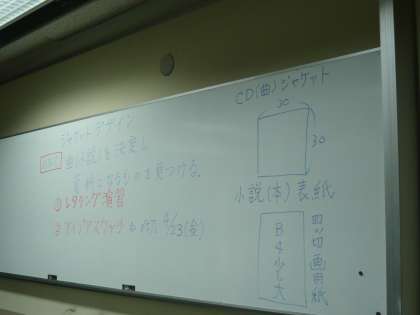 ジャケットデザイン
曲(小説)を決定し
資料になるものを見つける.
① レタリング演習
② アイデアスケッチ 4/23(金)
CD(曲)ジャケット
30
30
小説(本)表紙
B4少し大
四ツ切画用紙